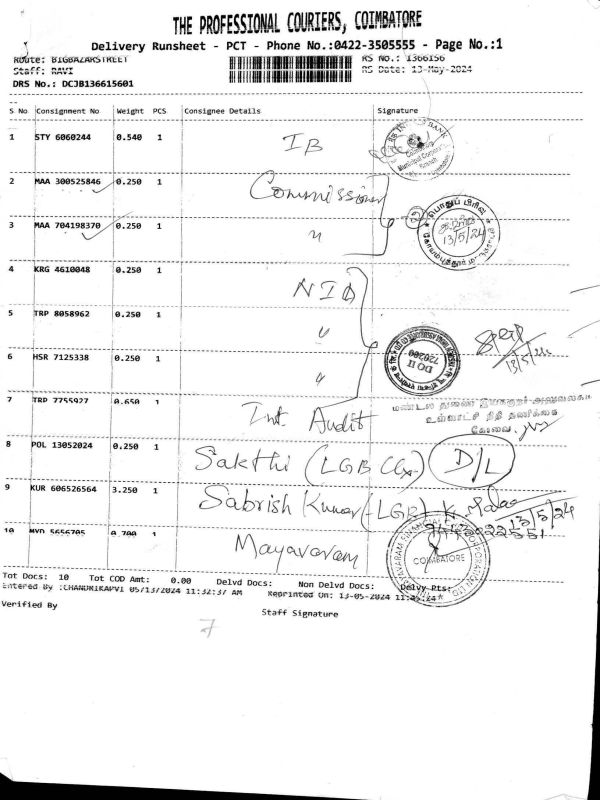 THE PROFESSIONAL COURIERS, COIMBATORE
Delivery Runsheet - PCT - Phone No.:0422-3505555 - Page No.:1
Route: BIGBAZARSTREET RS No.: 1366156
Staff: RAVI RS Date: 13-May-2024
DRS No.: DCJB136615601
S No Consignment No Weight PCS Consignee Details Signature
1 STY 6060244 0.540 1 IB
2 MAA 300525846 0.250 1 Commissioner
3 MAA 704198370 0.250 1 "
பொதுப் பிரிவு
13/5/24
4 KRG 4610048 0.250 1 NIA
5 TRP 8058962 0.250 1 "
6 HSR 7125338 0.250 1 "
DO II
720200
7 TRP 7755927 0.650 1 Int. Audit
மண்டல துணை இயக்குநர் அலுவலகம்
உள்ளாட்சி நிதி தணிக்கை
கோவை.
8 POL 13052024 0.250 1 Sakthi (LGB D/L
9 KUR 606526564 3.250 1 Sabrish Kumar (LGB)
13/5/24
10 MYD 5656705 0.700 1 Mayavaram
COIMBATORE
Tot Docs: 10 Tot COD Amt: 0.00 Delvd Docs: Non Delvd Docs: Delvy Pts:
Entered By :CHANDRIKAPVI 05/13/2024 11:32:37 AM Reprinted On: 13-05-2024
Verified By
Staff Signature
7